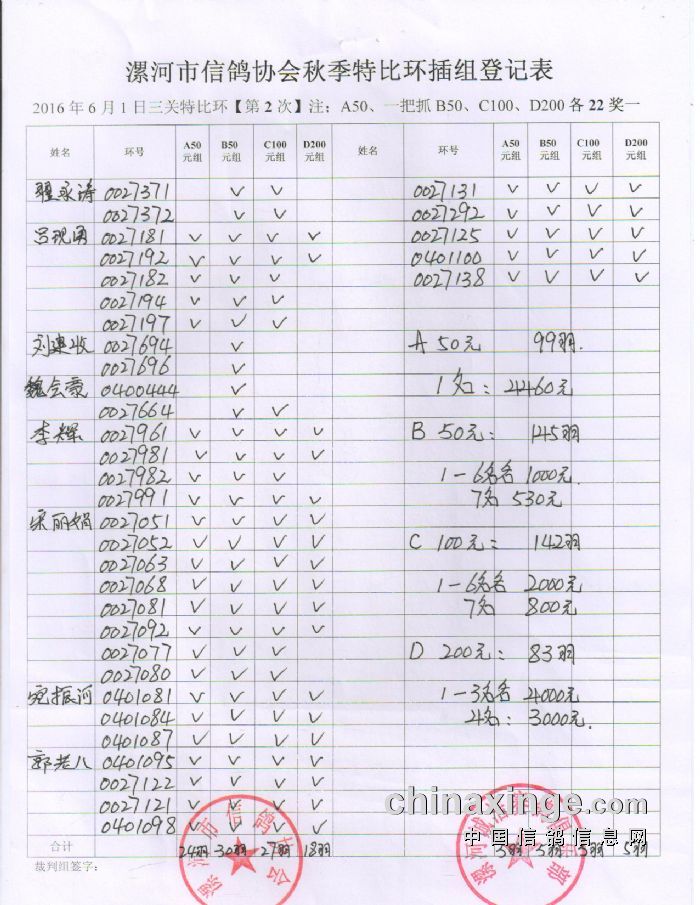 漯河市信鸽协会秋季特比环插组登记表
2016年6月1日三关特比环【第2次】注：A50、一把抓B50、C100、D200各22奖一
姓名 环号 A50元组 B50元组 C100元组 D200元组 姓名 环号 A50元组 B50元组 C100元组 D200元组
翟永涛 0027371 ✓ ✓ 0027131 ✓ ✓ ✓ ✓
0027372 ✓ ✓ 0027292 ✓ ✓ ✓ ✓
吕现勇 0027181 ✓ ✓ ✓ ✓ 0027125 ✓ ✓ ✓ ✓
0027192 ✓ ✓ ✓ ✓ 0401100 ✓ ✓ ✓ ✓
0027182 ✓ ✓ ✓ 0027138 ✓ ✓ ✓ ✓
0027194 ✓ ✓ ✓
0027197 ✓ ✓ ✓
刘建收 0027694 ✓ A 50元 99羽.
0027696 ✓
魏会豪 0400444 ✓ 1名：4460元
0027664 ✓ ✓
李辉 0027961 ✓ ✓ ✓ ✓ B 50元： 145羽
0027981 ✓ ✓ ✓ ✓
0027982 ✓ ✓ ✓ 1-6名各 1000元.
0027991 ✓ ✓ ✓ ✓ 7名 530元
宋丽娟 0027051 ✓ ✓ ✓ ✓
0027052 ✓ ✓ ✓ ✓ C 100元： 142羽
0027063 ✓ ✓ ✓ ✓
0027068 ✓ ✓ ✓ ✓ 1-6名各 2000元
0027081 ✓ ✓ ✓ ✓ 7名 800元
0027092 ✓ ✓ ✓ ✓
0027077 ✓ ✓ ✓ D 200元： 83羽
0027080 ✓ ✓ ✓
振河 0401081 ✓ ✓ ✓ ✓ 1-3名各 4000元
0401084 ✓ ✓ ✓ ✓ 4名： 3000元.
0401087 ✓ ✓ ✓ ✓
郭老八 0401095 ✓ ✓ ✓ ✓
0027122 ✓ ✓ ✓ ✓
0027121 ✓ ✓ ✓ ✓
0401098 ✓ ✓ ✓ ✓
合计 24羽 30羽 27羽 18羽 5羽 5羽 5羽 5羽
裁判组签字：
漯河市信鸽协会
chinaxinge.com
中国信鸽信息网